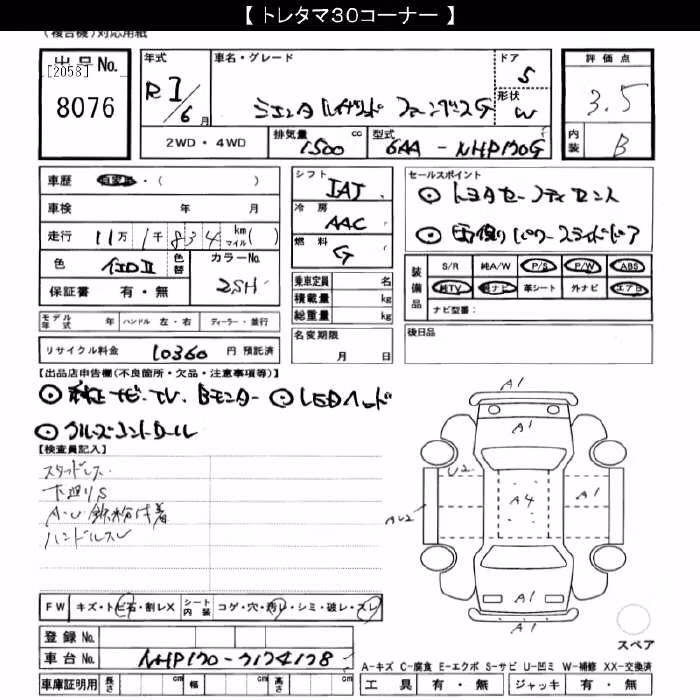 【 トレタマ30コーナー 】
(複合機)対応用紙
出品No. [2058] 8076
年式 R 1/6月
車名・グレード シエンタ ハイブリッド ファンベースG
ドア 5
形状 W
評価点 3.5
内装 B
2WD・4WD
排気量 1500 cc
型式 6AA-NHP170G
車歴 自家用・( )
車検 年 月
走行 11万1千834 km マイル( )
色 色替 カラーNo. 2SH
保証書 有・無
シフト IAT
冷房 AAC
燃料 G
乗車定員 名
積載量 kg
総重量 kg
セールスポイント
⊙ トヨタセーフティセンス
⊙ 両側パワースライドドア
装備品 S/R 純A/W P/S P/W ABS
純TV 純ナビ 革シート 外ナビ エアB
ナビ型番:
モデル年式 年 ハンドル 左・右 ディーラー・並行
名変期限 月 日
後日品
リサイクル料金 10360 円 預託済
【出品店申告欄(不良箇所・欠品・注意事項等)】
⊙ 純正ナビ・TV・Bモニター ⊙ LEDヘッド
⊙ クルーズコントロール
【検査員記入】
スタッドレス
下廻りS
A・U 鉄粉付着
ハンドルスレ
A1
A1
U2
A4
A1
AU2
A1
A1
スペア
FW キズ・トビ石・割レX シート内装 コゲ・穴・汚レ・シミ・破レ・スレ
登録No.
車台No. NHP170-7174178
A-キズ C-腐食 E-エクボ S-サビ U-凹ミ W-補修 XX-交換済
車庫証明用 長さ cm 幅 cm 高さ cm
工具 有・無 ジャッキ 有・無